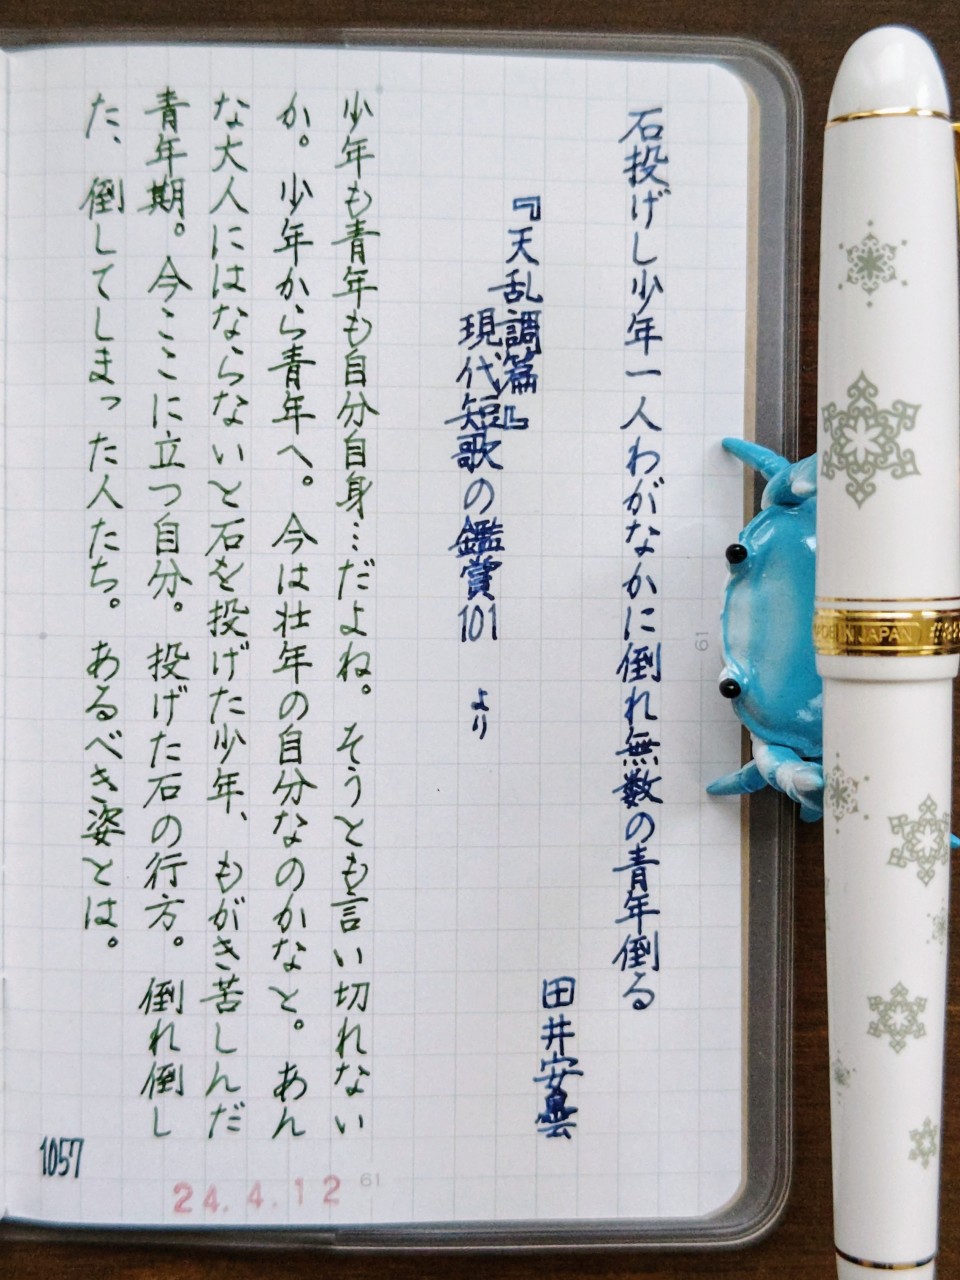 石投げし少年一人わがなかに倒れ無数の青年倒る
田井安曇
『天乱調篇』
現代短歌の鑑賞101 より
少年も青年も自分自身…だよね。そうとも言い切れない
か。少年から青年へ。今は壮年の自分なのかなと。あん
な大人にはならないと石を投げた少年、もがき苦しんだ
青年期。今ここに立つ自分。投げた石の行方。倒れ倒し
た、倒してしまった人たち。あるべき姿とは。
1057
24.4.12
61
61
MADE IN JAPAN